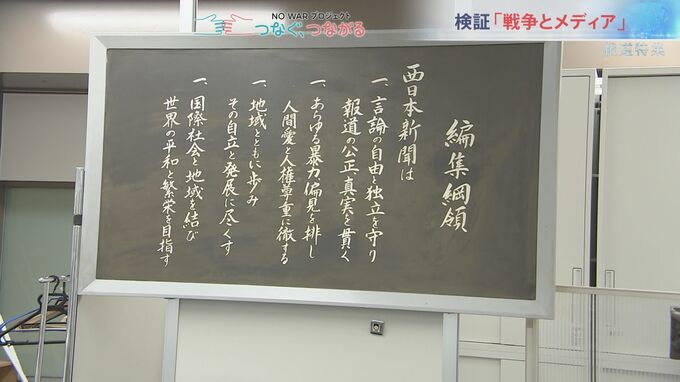 NO WAR プロジェクト
つなぐ、つながる
検証「戦争とメディア」
報道特集
編集綱領
西日本新聞は
一、言論の自由と独立を守り
報道の公正、真実を貫く
一、あらゆる暴力、偏見を排し
人間愛と人権尊重に徹する
一、地域とともに歩み
その自立と発展に尽くす
一、国際社会と地域を結び
世界の平和と繁栄を目指す